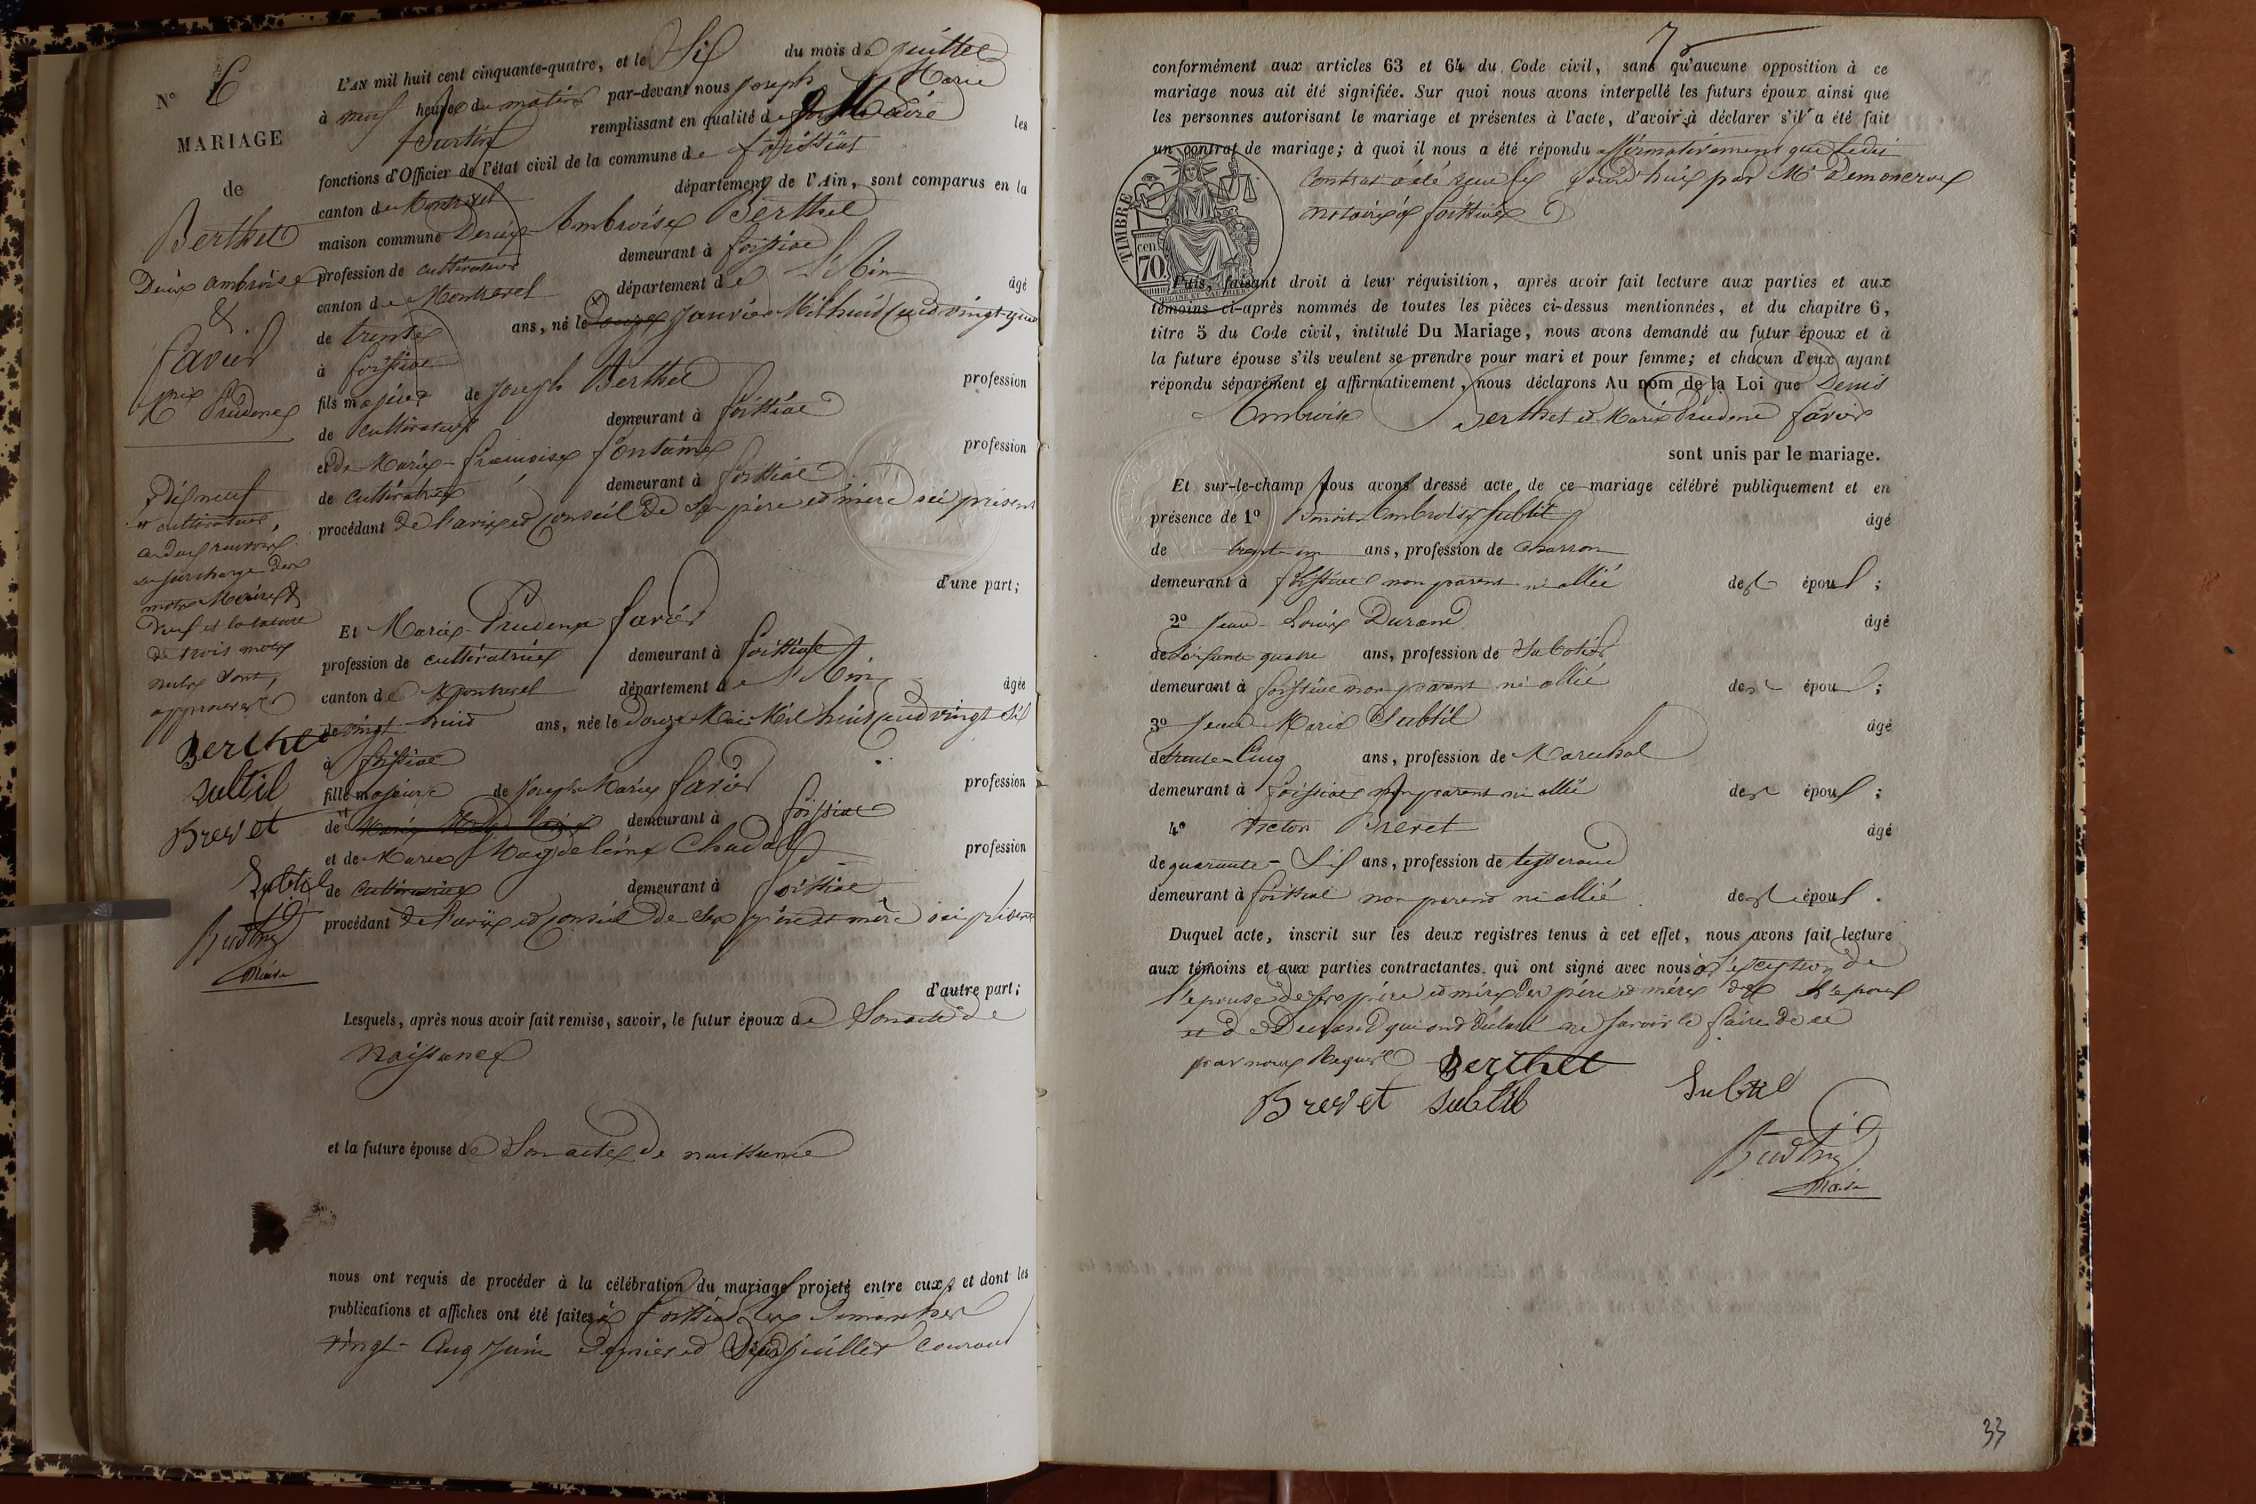 N° 6
MARIAGE
de
Berthet
Denis ambroise
&
favier
Mie Prudence
dix neuf
et cultivateur,
en surcharge des
mots Maire &
neuf et la rature
de trois mots
nuls sont,
approuvés
Berthet
subtil
Brevet
Subtil
Maire
L'AN mil huit cent cinquante-quatre, et le Six du mois de juillet
à neuf heures du matin par-devant nous joseph Marie
remplissant en qualité de Maire les
fonctions d'Officier de l'état civil de la commune de foissiat
canton de Montrevel département de l'Ain, sont comparus en la
maison commune Denis Ambroise Berthet
profession de cultivateur demeurant à foissiat
canton de Montrevel département de L'Ain âgé
de trente ans, né le douze janvier Mil huit cent vingt quatre
à foissiat
fils majeur de joseph Berthet profession
de cultivateur demeurant à foissiat
et de Marie françoise fontaine profession
de cultivatrice demeurant à foissiat
procédant de l'avis et conseil de ses père et mère ici présents
d'une part;
Et Marie Prudence favier
profession de cultivatrice demeurant à foissiat
canton de Montrevel département de l'Ain âgée
de vingt huit ans, née le douze Mai Mil huit cent vingt six
à foissiat
fille majeure de joseph Marie favier profession
de demeurant à foissiat
et de Marie Magdeleine profession
de cultivatrice demeurant à foissiat
procédant de l'avis et conseil de ses père et mère ici présents
d'autre part;
Lesquels, après nous avoir fait remise, savoir, le futur époux de Son acte de
naissance
et la future épouse de Son acte de naissance
nous ont requis de procéder à la célébration du mariage projeté entre eux, et dont les
publications et affiches ont été faites à foissiat les dimanches
vingt-Cinq juin dernier et deux juillet courant
7
conformément aux articles 63 et 64 du Code civil, sans qu'aucune opposition à ce
mariage nous ait été signifiée. Sur quoi nous avons interpellé les futurs époux ainsi que
les personnes autorisant le mariage et présentes à l'acte, d'avoir à déclarer s'il a été fait
un contrat de mariage; à quoi il nous a été répondu affirmativement que ledit
contrat a été reçu par Me
notaire à foissiat
TIMBRE
70
cen
Puis, faisant droit à leur réquisition, après avoir fait lecture aux parties et aux
témoins ci-après nommés de toutes les pièces ci-dessus mentionnées, et du chapitre 6,
titre 5 du Code civil, intitulé Du Mariage, nous avons demandé au futur époux et à
la future épouse s'ils veulent se prendre pour mari et pour femme; et chacun d'eux ayant
répondu séparément et affirmativement, nous déclarons Au nom de la Loi que Denis
Ambroise Berthet et Marie Prudence favier
sont unis par le mariage.
Et sur-le-champ nous avons dressé acte de ce mariage célébré publiquement et en
présence de 1° Benoit Ambroise Subtil âgé
de trente un ans, profession de charron
demeurant à foissiat non parent ni allié des époux;
2° jean Louis Durand âgé
de soixante quatre ans, profession de Sabotier
demeurant à foissiat non parent ni allié des époux;
3° jean Marie Subtil âgé
de trente-Cinq ans, profession de Marechal
demeurant à foissiat non parent ni allié des époux;
4° Victor Brevet âgé
de quarante-Six ans, profession de tisserand
demeurant à foissiat non parent ni allié des époux.
Duquel acte, inscrit sur les deux registres tenus à cet effet, nous avons fait lecture
aux témoins et aux parties contractantes, qui ont signé avec nous à l'exception de
l'épouse de ses père et mère des père et mère de l'époux
et de Durand qui ont déclaré ne savoir le faire de ce
par nous Requis Berthet
Brevet subtil Subtil
Maire
33